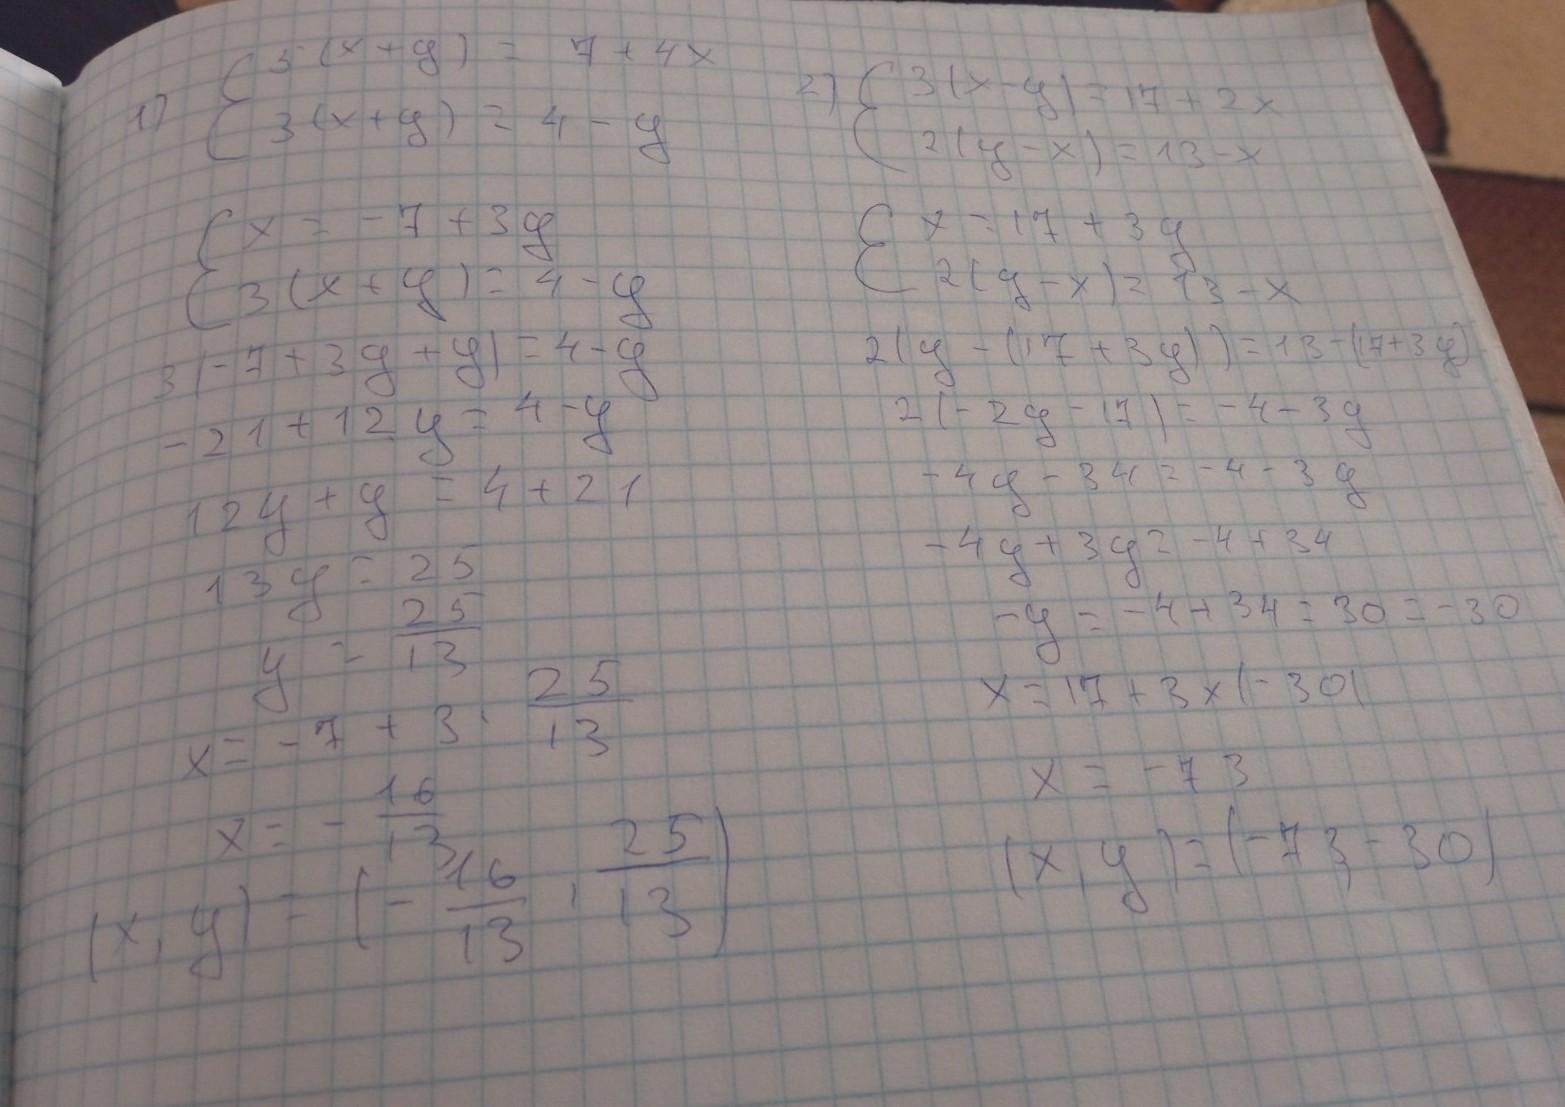 1) { 3(x+y) = 7+4x
3(x+y) = 4-y
{ x = -7+3y
3(x+y) = 4-y
3(-7+3y+y) = 4-y
-21+12y = 4-y
12y+y = 4+21
13y = 25
y = 25/13
x = -7+3·25/13
x = -16/13
(x, y) = (-16/13, 25/13)
2) { 3(x-y) = 17+2x
2(y-x) = 13-x
{ x = 17+3y
2(y-x) = 13-x
2(y-(17+3y)) = 13-(17+3y)
2(-2y-17) = -4-3y
-4y-34 = -4-3y
-4y+3y = -4+34
-y = -4+34 = 30 = -30
x = 17+3x(-30)
x = -73
(x, y) = (-73, -30)